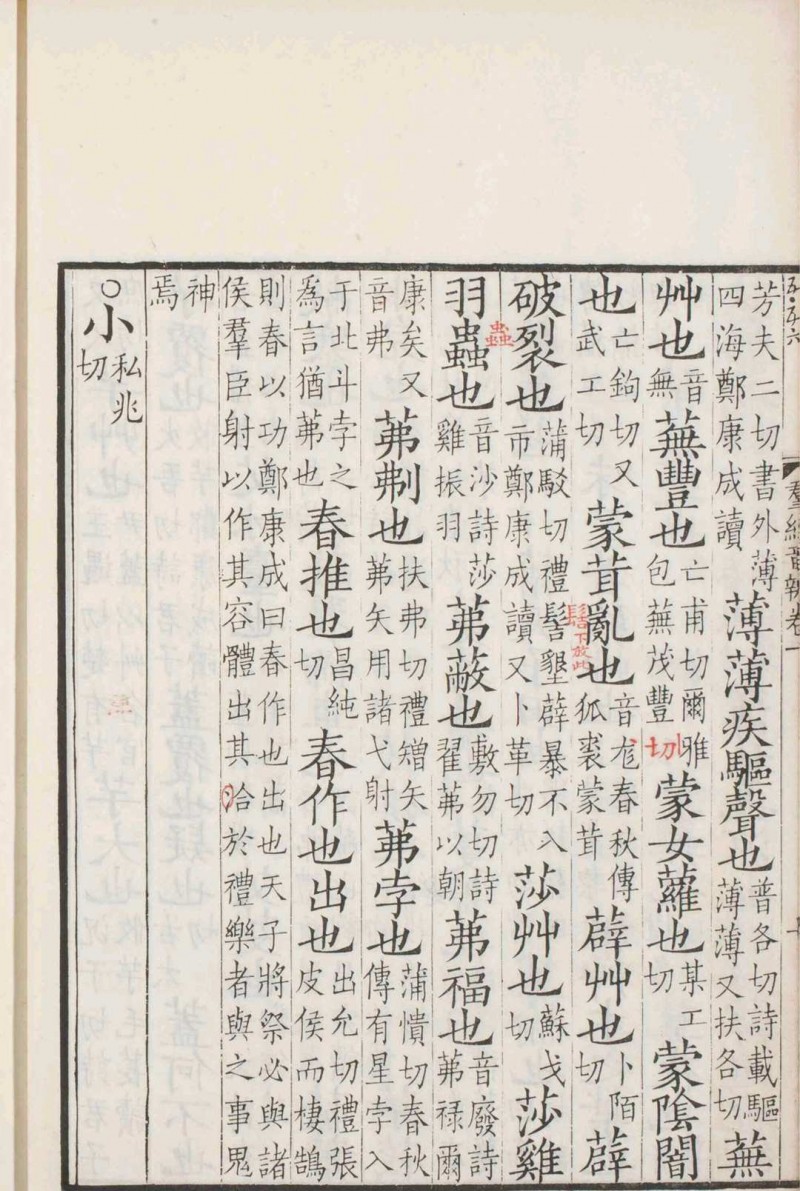 五·五六
羣經音辨卷一
芳夫二切書外薄四海鄭康成讀薄薄疾驅聲也普各切詩載驅薄薄又扶各切蕪
艸也音無蕪豐也亡甫切爾雅包蕪茂豐切蒙女蘿也某工切蒙陰闇
也亡鉤切又武工切蒙茸亂也音尨春秋傳狐裘蒙茸薜艸也卜陌切薜
髺下放此
破裂也蒲駁切禮髻墾薜暴不入市鄭康成讀又卜革切莎艸也蘇戈切莎雞
蟲
羽蟲也音沙詩莎雞振羽茀蔽也敷勿切詩翟茀以朝茀福也音廢詩茀祿爾
康矣又音弗茀刜也扶弗切禮矰矢茀矢用諸弋射茀孛也蒲憒切春秋傳有星孛入
于北斗孛之爲言猶茀也春推也昌純切春作也出也出允切禮張皮侯而棲鵠
則春以功鄭康成曰春作也出也天子將祭必與諸侯羣臣射以作其容體出其洽於禮樂者與之事鬼
神焉
○小私兆切